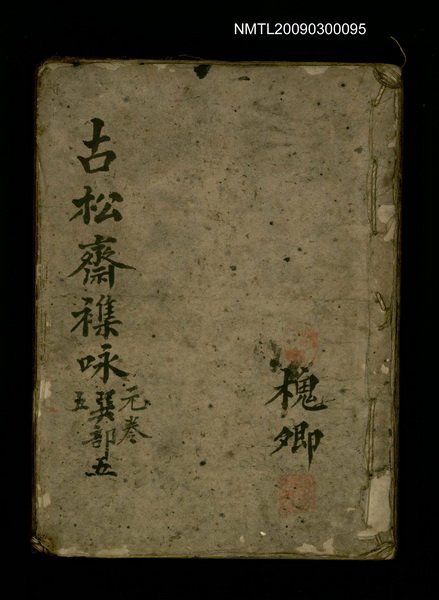 NMTL20090300095
古松齋襍咏
元卷
巽部五
五
槐卿